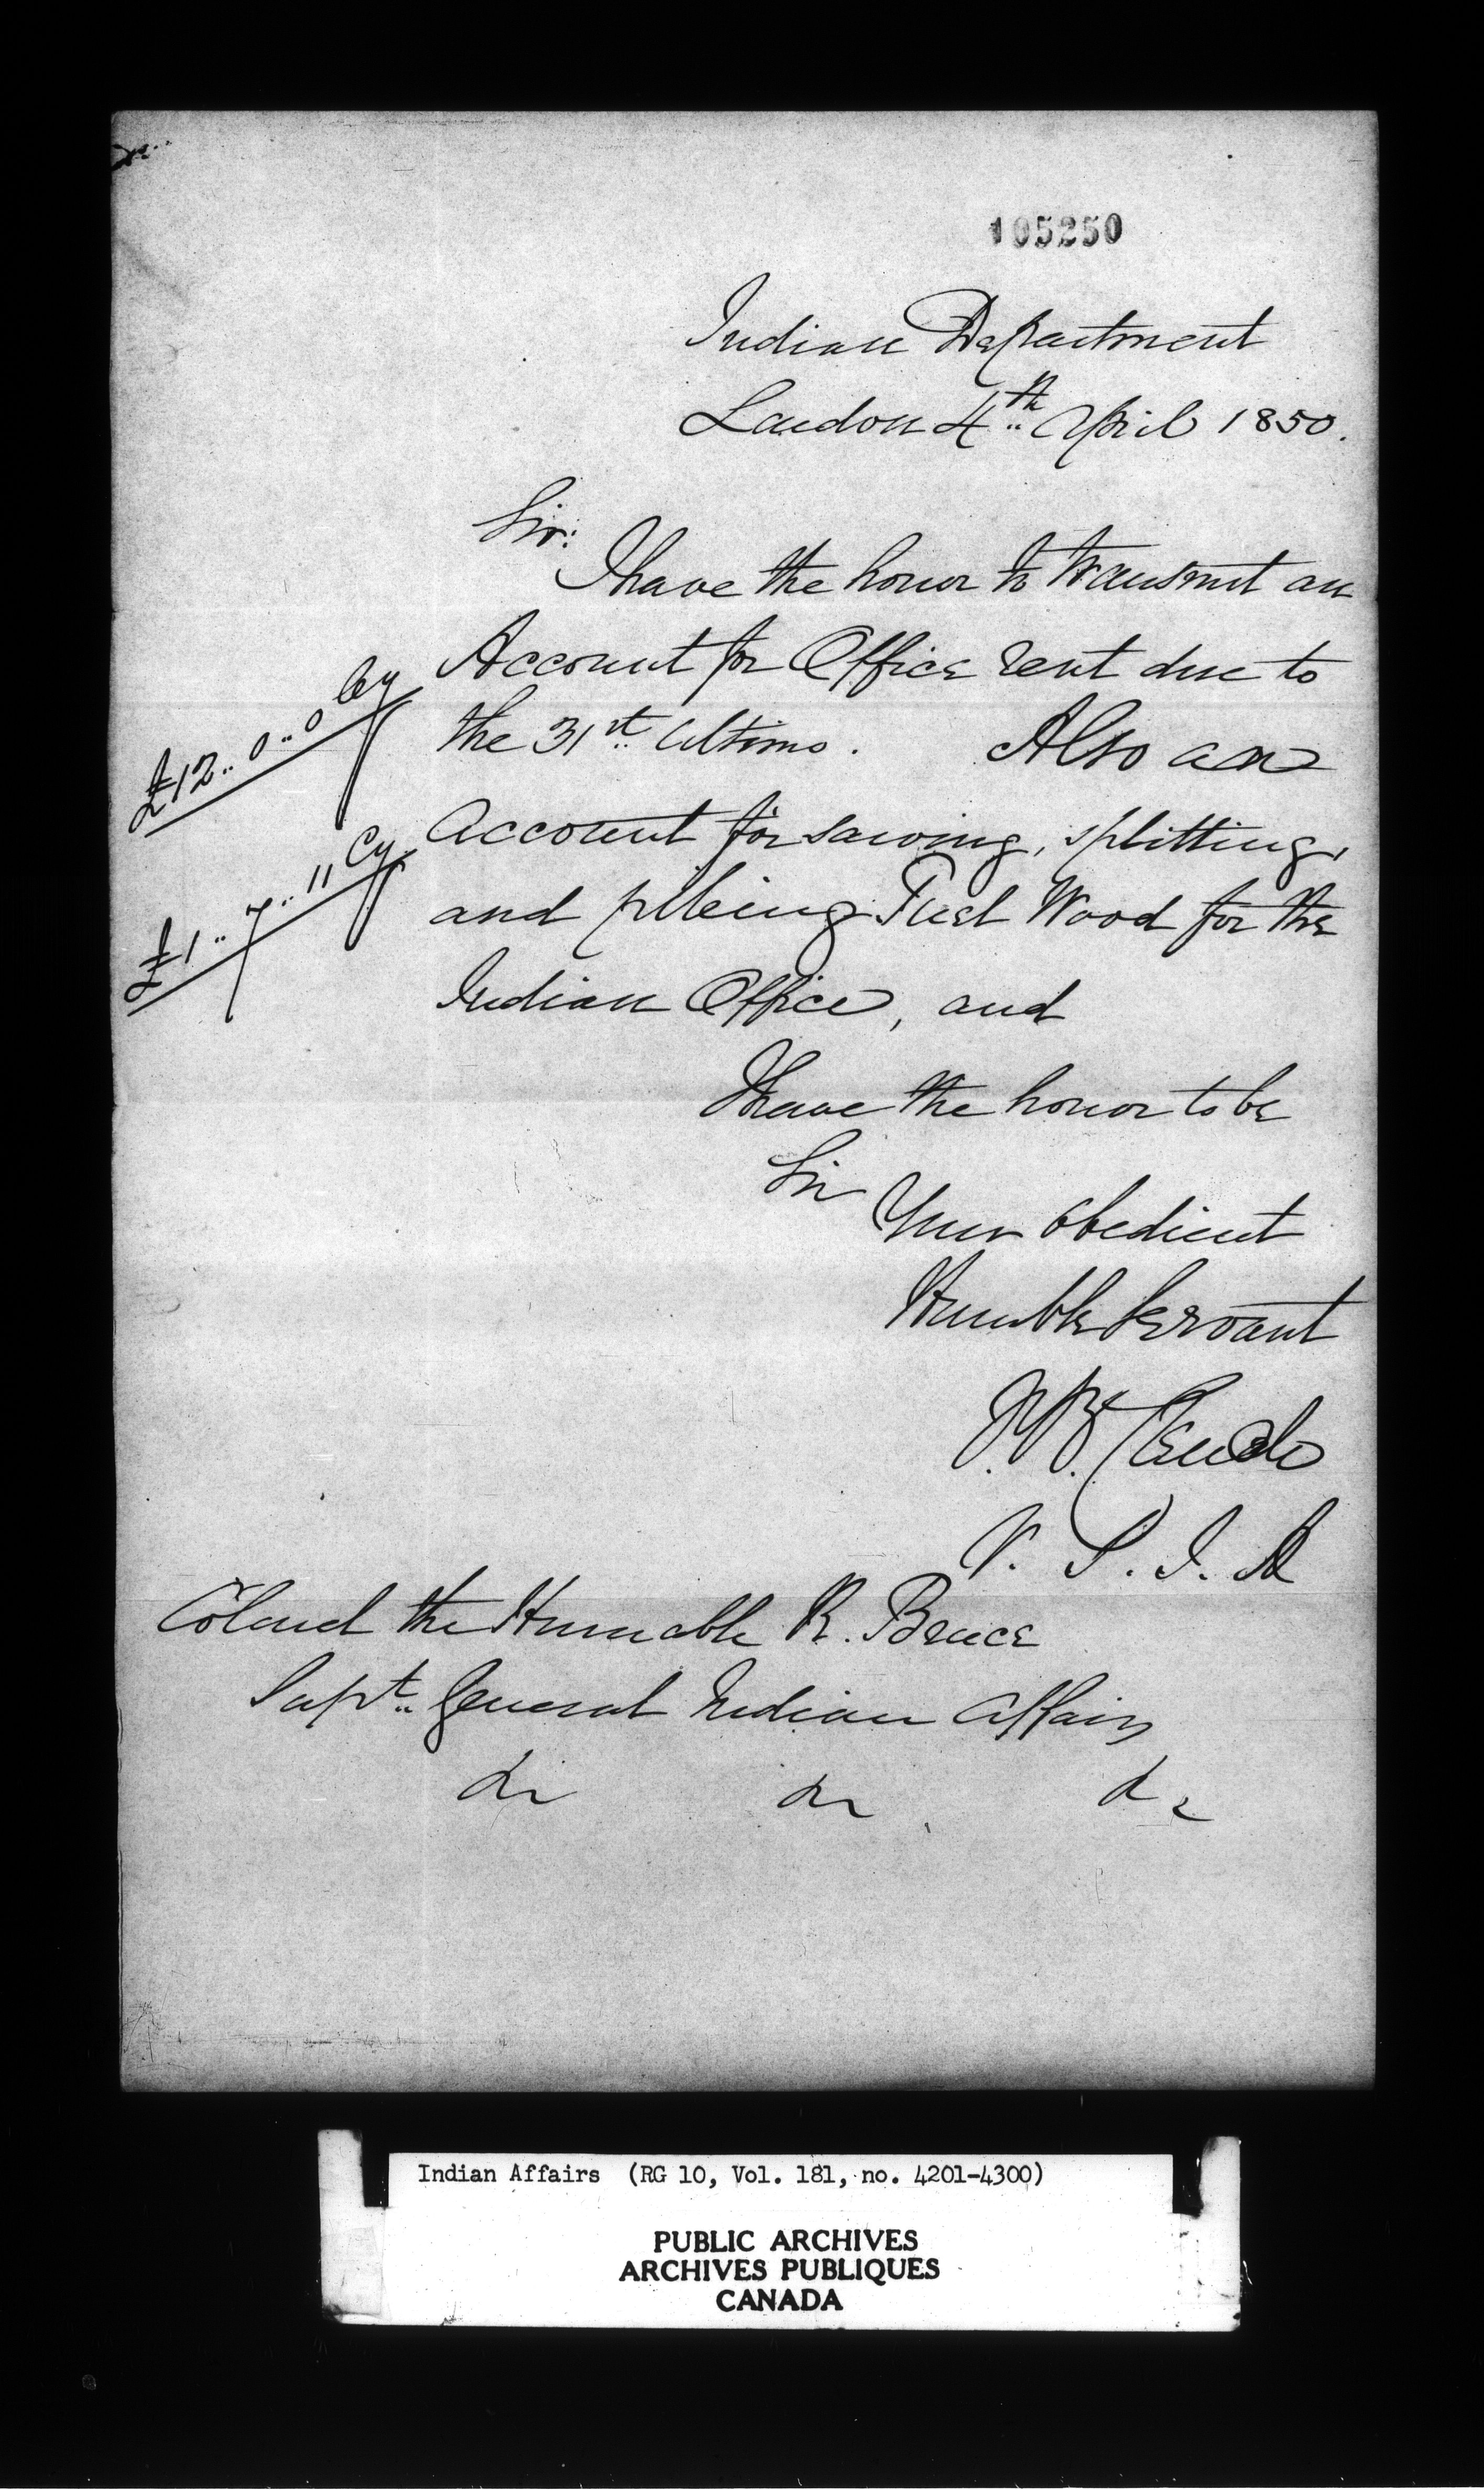 105250
Indian Department
London 4th April 1850.
Sir:
I have the honor to transmit an
Account for Office rent due to
the 31st Ultimo. Also an
£12..0..0 Cy
Account for sawing, splitting,
and pileing Fuel Wood for the
£1..7..11 Cy
Indian Office, and
I have the honor to be
Sir
Your obedient
Humble Servant
J. B. Clench
V. S. I. A
Colonel the Honorable R. Bruce
Supt. General Indian Affairs
&c &c &c
Indian Affairs (RG 10, Vol. 181, no. 4201-4300)
PUBLIC ARCHIVES
ARCHIVES PUBLIQUES
CANADA